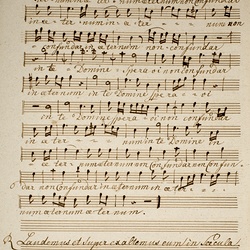 in æ ter num in æ ter num non
confundar in æternum non confundar
in te Domine Speravi non confundar
in æternum in te Domine spera vi
in te Domine spera vi non confundar
in æ ter num in te Domine in
æ ter num æternum non confundar non confun
dar non confundar in æternum in æ ter
num æternum æ ter num.
Laudamus et superexaltemus eum in Sæcula